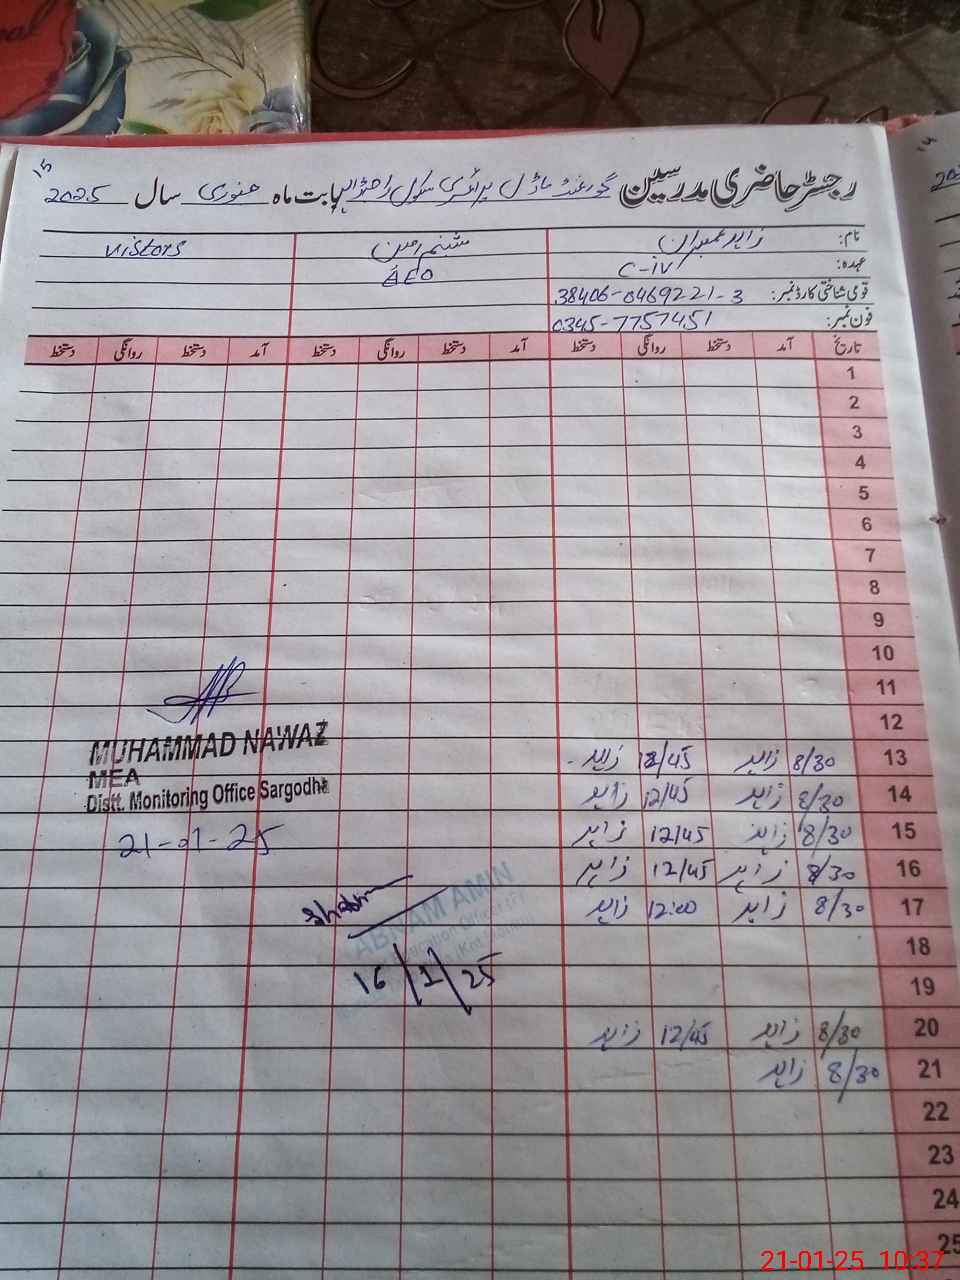 nal
15
رجسٹر حاضری مدرسین گورنمنٹ ماڈل پرائمری سکول بابت ماہ جنوری سال 2025
نام: زاہد عمران شبنم امین visitors
عہدہ: C-iv AEO
قومی شناختی کارڈ نمبر: 38406-0469221-3
فون نمبر: 0345-7757451
تاریخ آمد دستخط روانگی دستخط آمد دستخط روانگی دستخط آمد دستخط روانگی دستخط
1
2
3
4
5
6
7
8
9
10
11
12
MUHAMMAD NAWAZ
13 8/30 زاہد 12/45 زاہد
MEA
14 8/30 زاہد 12/45 زاہد
Distt. Monitoring Office Sargodha
15 8/30 زاہد 12/45 زاہد
21-01-25
16 8/30 زاہد 12/45 زاہد
17 8/30 زاہد 12:00 زاہد
AMIN
18
16/1/25
19
20 8/30 زاہد 12/45 زاہد
21 8/30 زاہد
22
23
24
25
21-01-25 10:37